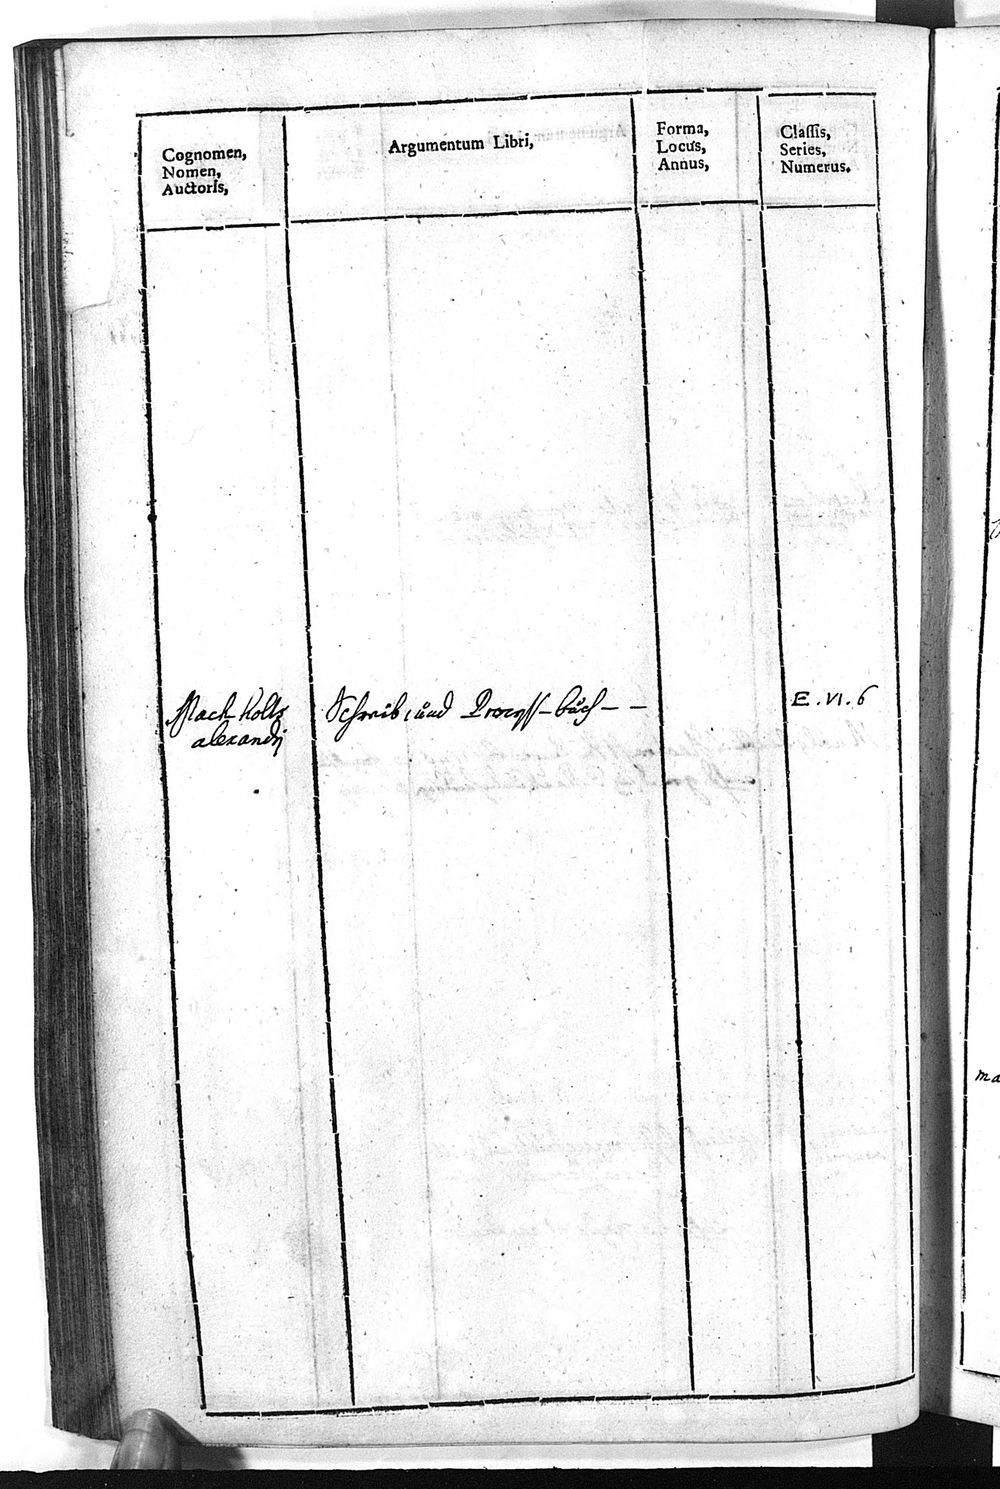 Cognomen,
Nomen,
Auctoris,
Argumentum Libri,
Forma,
Locus,
Annus,
Classis,
Series,
Numerus.
Mach-Holtz
alexandri
Schreib, und Process-buch - -
E. VI. 6
ma